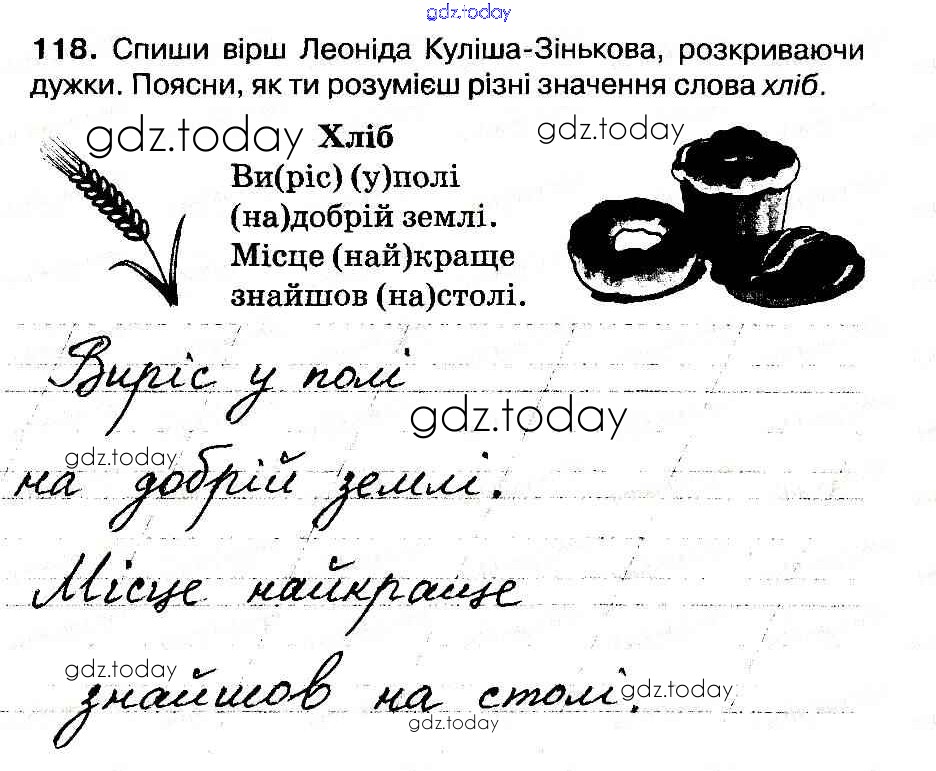 gdz.today
118. Спиши вірш Леоніда Куліша-Зінькова, розкриваючи
дужки. Поясни, як ти розумієш різні значення слова хліб.
gdz.today
gdz.today
Хліб
Ви(ріс) (у)полі
(на)добрій землі.
Місце (най)краще
знайшов (на)столі.
Виріс у полі
gdz.today
gdz.today
на добрій землі.
Місце найкраще
gdz.today
знайшов на столі.
gdz.today
gdz.today